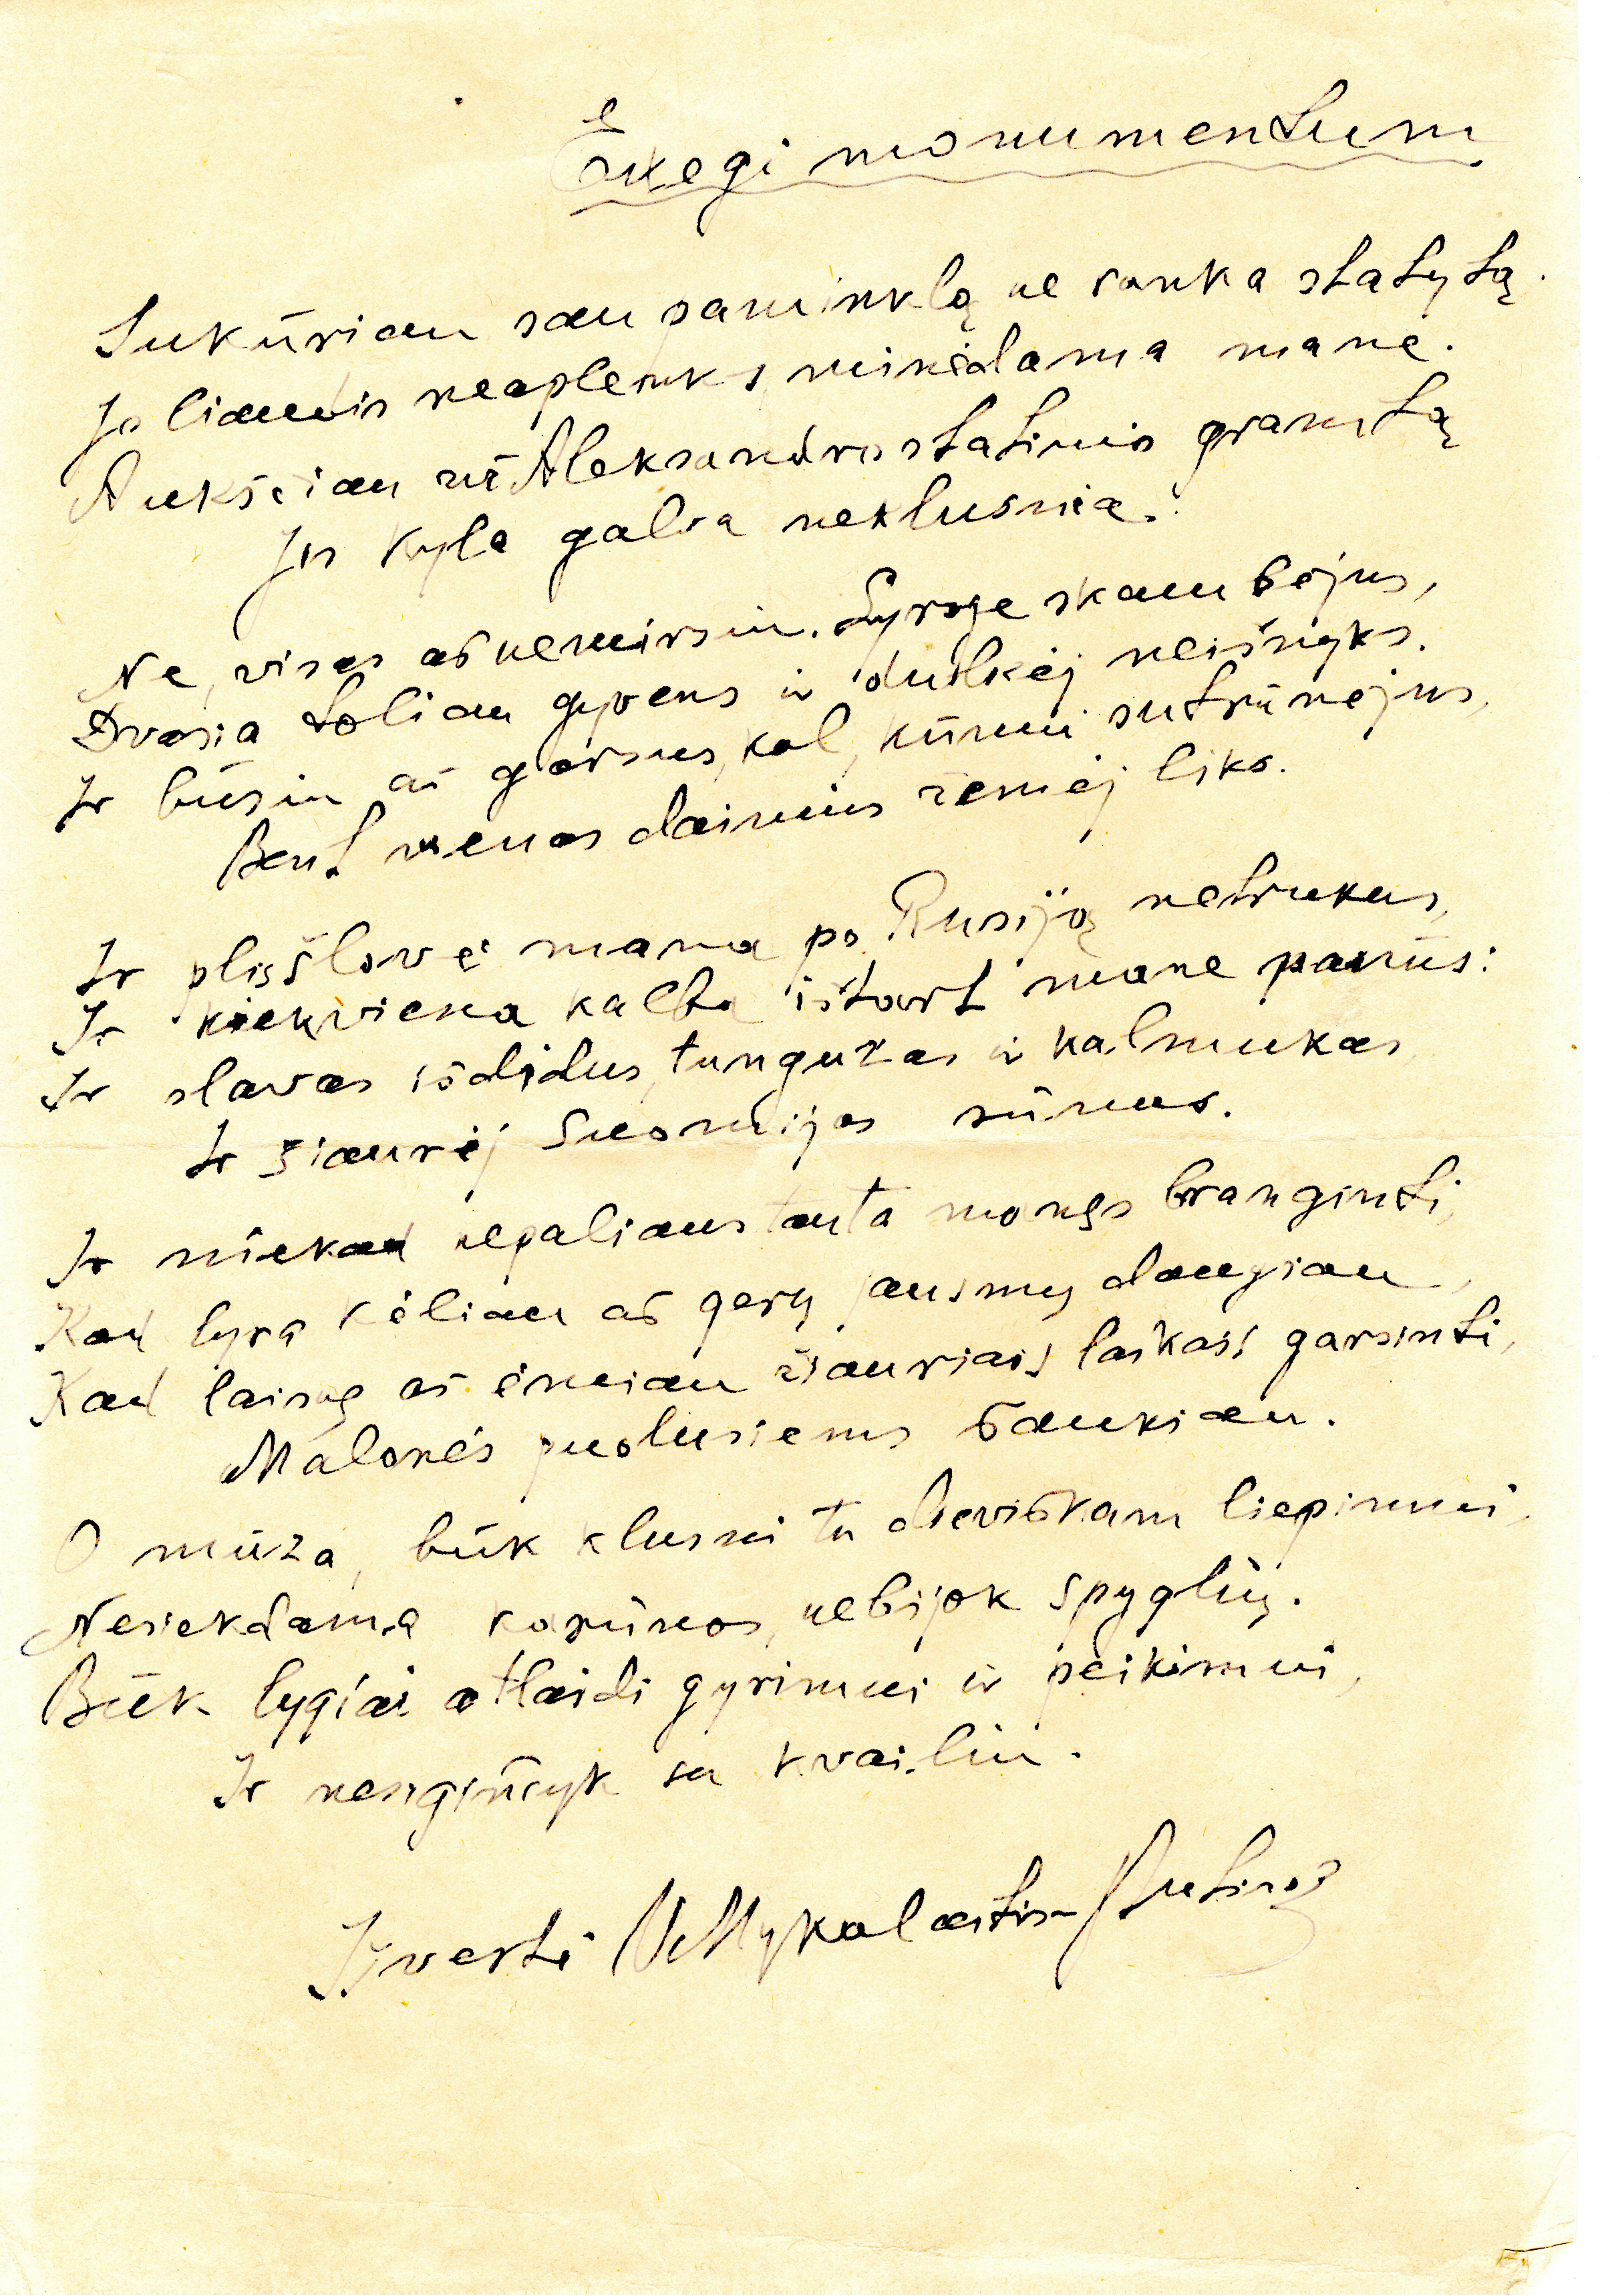 Exegi monumentum
Sukūriau sau paminklą ne ranka statytą.
Jo liaudis neaplenks, minėdama mane.
Aukščiau už Aleksandro statinio granitą
Jis kyla galva neklusnia.
Ne, visas aš nemirsiu. Lyroje skambėjus,
Dvasia toliau gyvens ir dulkėj neišnyks.
Ir būsiu aš garsus, kol, kūnui sutrūnėjus,
Bent vienas dainius žemėj liks.
Ir plis šlovė mana po Rusiją netrukus,
Ir kiekviena kalba ištart mane panūs:
Ir slavas išdidus, tunguzas ir kalmukas
Ir šiaurėj Suomijos sūnus.
Ir niekad nepaliaus tauta manęs branginti,
Kad lyra kėliau aš gerų jausmų daugiau,
Kad laisvę aš ėmiau žiauriais laikais garsinti,
Malonės puolusiems šaukiau.
O mūza, būk klusni tu dieviškam liepimui,
Nesiekdama karūnos, nebijok spyglių.
Būk lygiai atlaidi gyrimui ir peikimui,
Ir nesiginčyk su kvailiu.
Išvertė V. Mykolaitis-Putinas